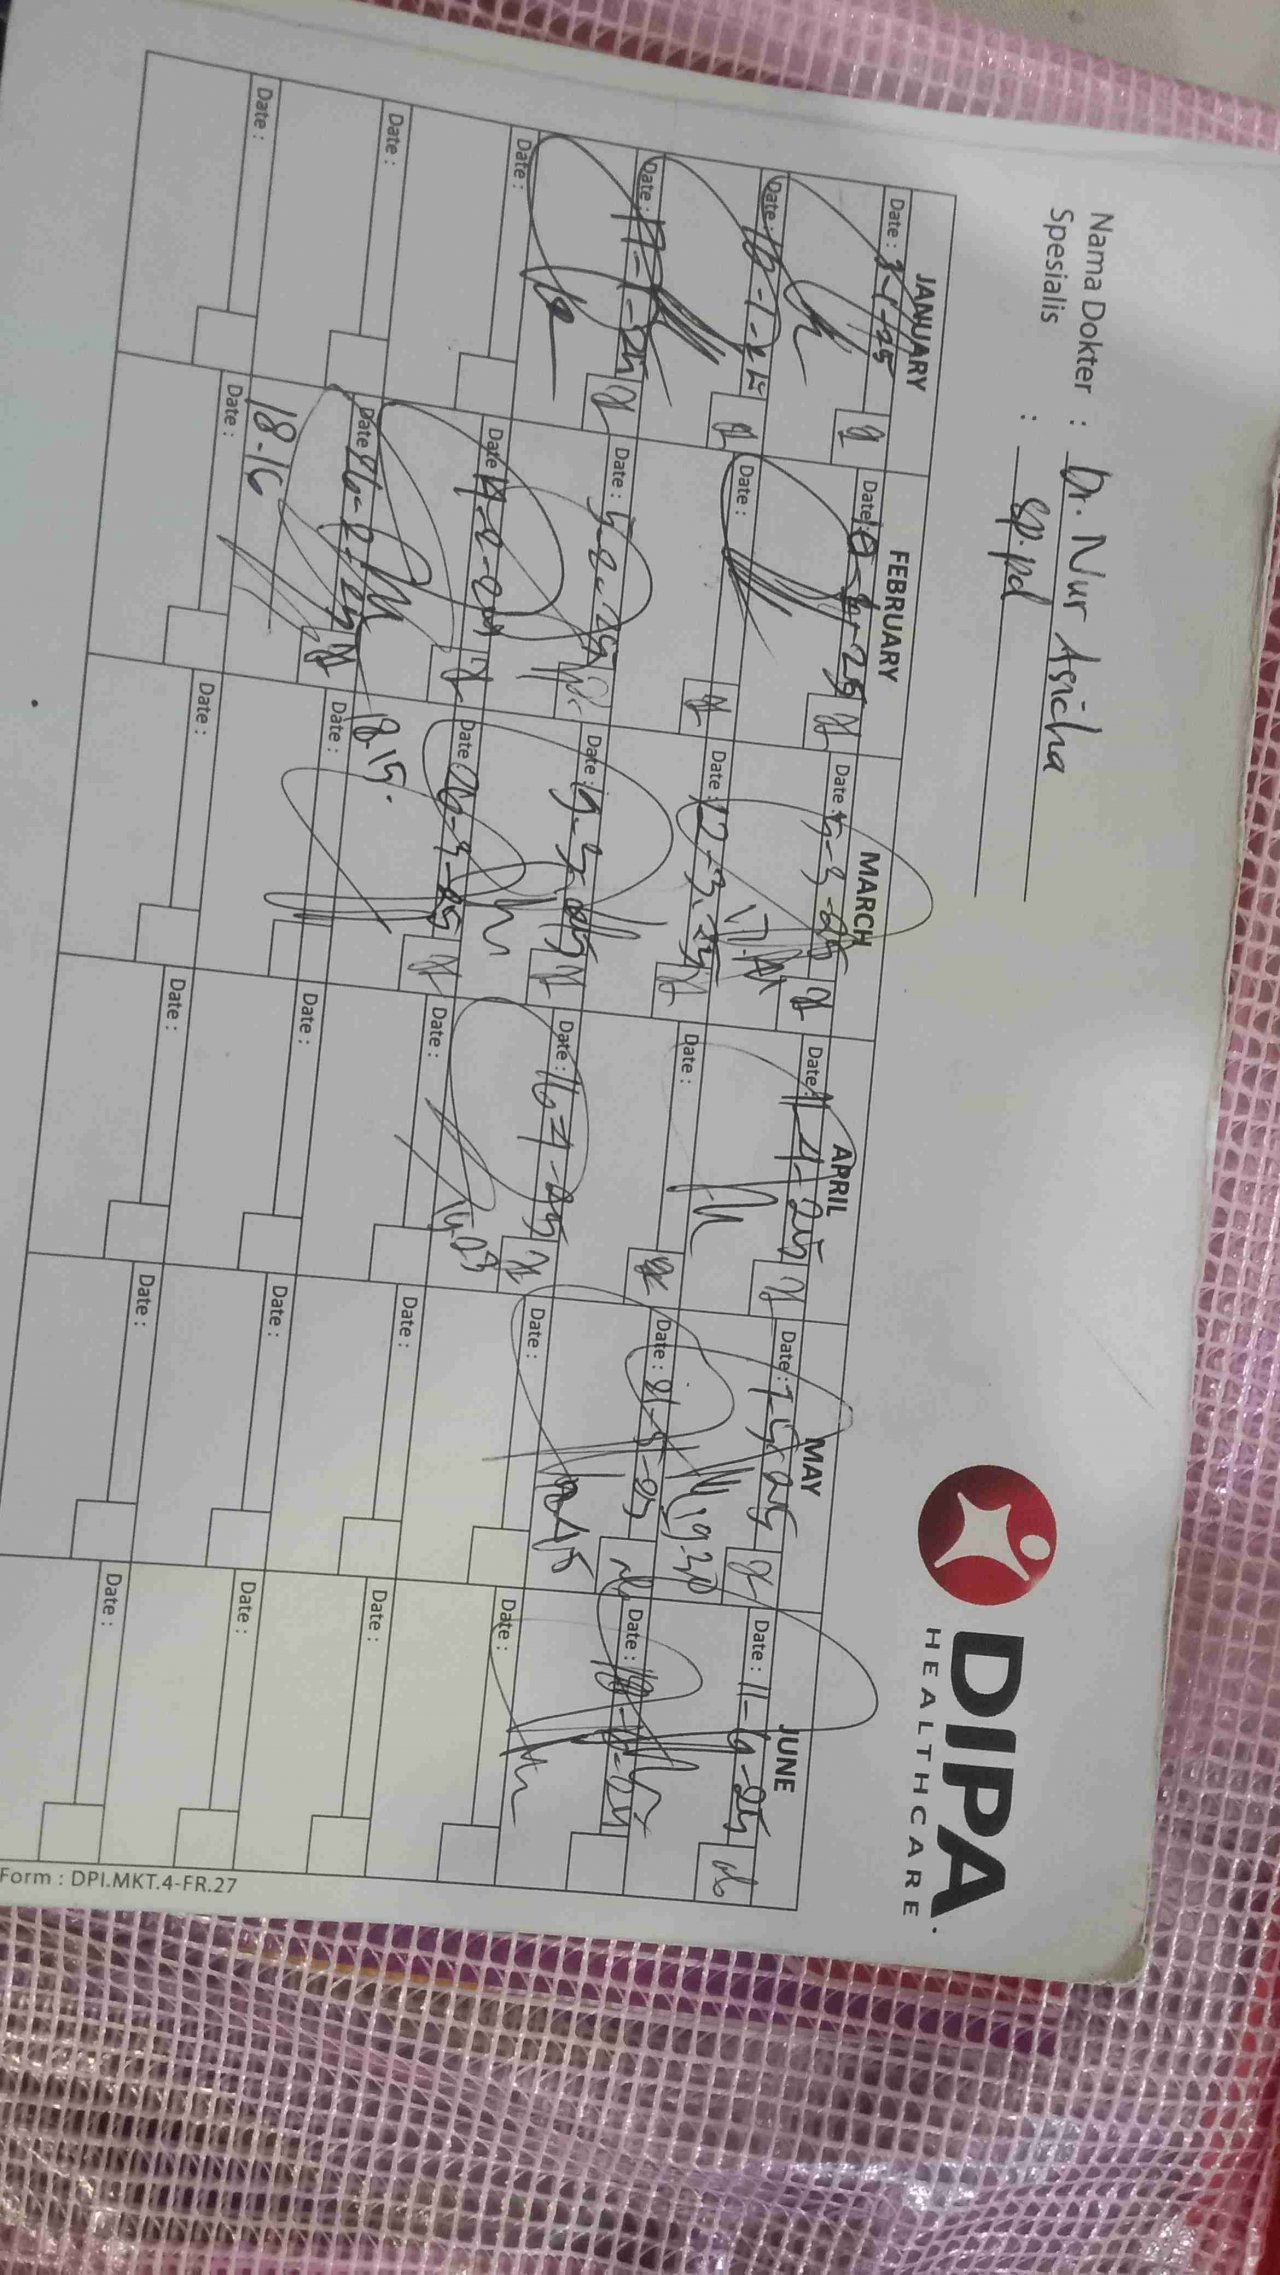 DIPA
HEALTHCARE
Nama Dokter : Dr. Nur Asicha
Spesialis : Sp.pd
JANUARY FEBRUARY MARCH APRIL MAY JUNE
Date : 3-1-25 Date : Date : 5-3-25 Date : 11-4-25 Date : 7-5-25 Date : 11-6-25
17.
19.30
Date : 10-1-25 Date : Date : 12-3-25 Date : Date : 21-5-25 Date : 18-6-25
Date : 17-1-25 Date : 5-2-25 Date : 19-3-25 Date : 16-4-25 Date : Date :
19.03
Date : Date : Date : 26-3-25 Date : Date : Date :
18.15.
Date : Date : 26-2-25 Date : Date : Date : Date :
18.16
Date : Date : Date : Date : Date : Date :
Form : DPI.MKT.4-FR.27